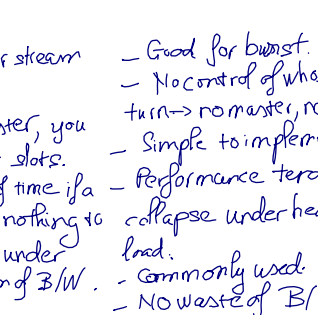 r stream
ster, you
slots.
f time if a
nothing to
under
n of B/W.
- Good for burst.
- No control of who
turn -> no master, no
- Simple to implem
- Performance
collapse under hea
load.
- Commonly used.
- No waste of B/